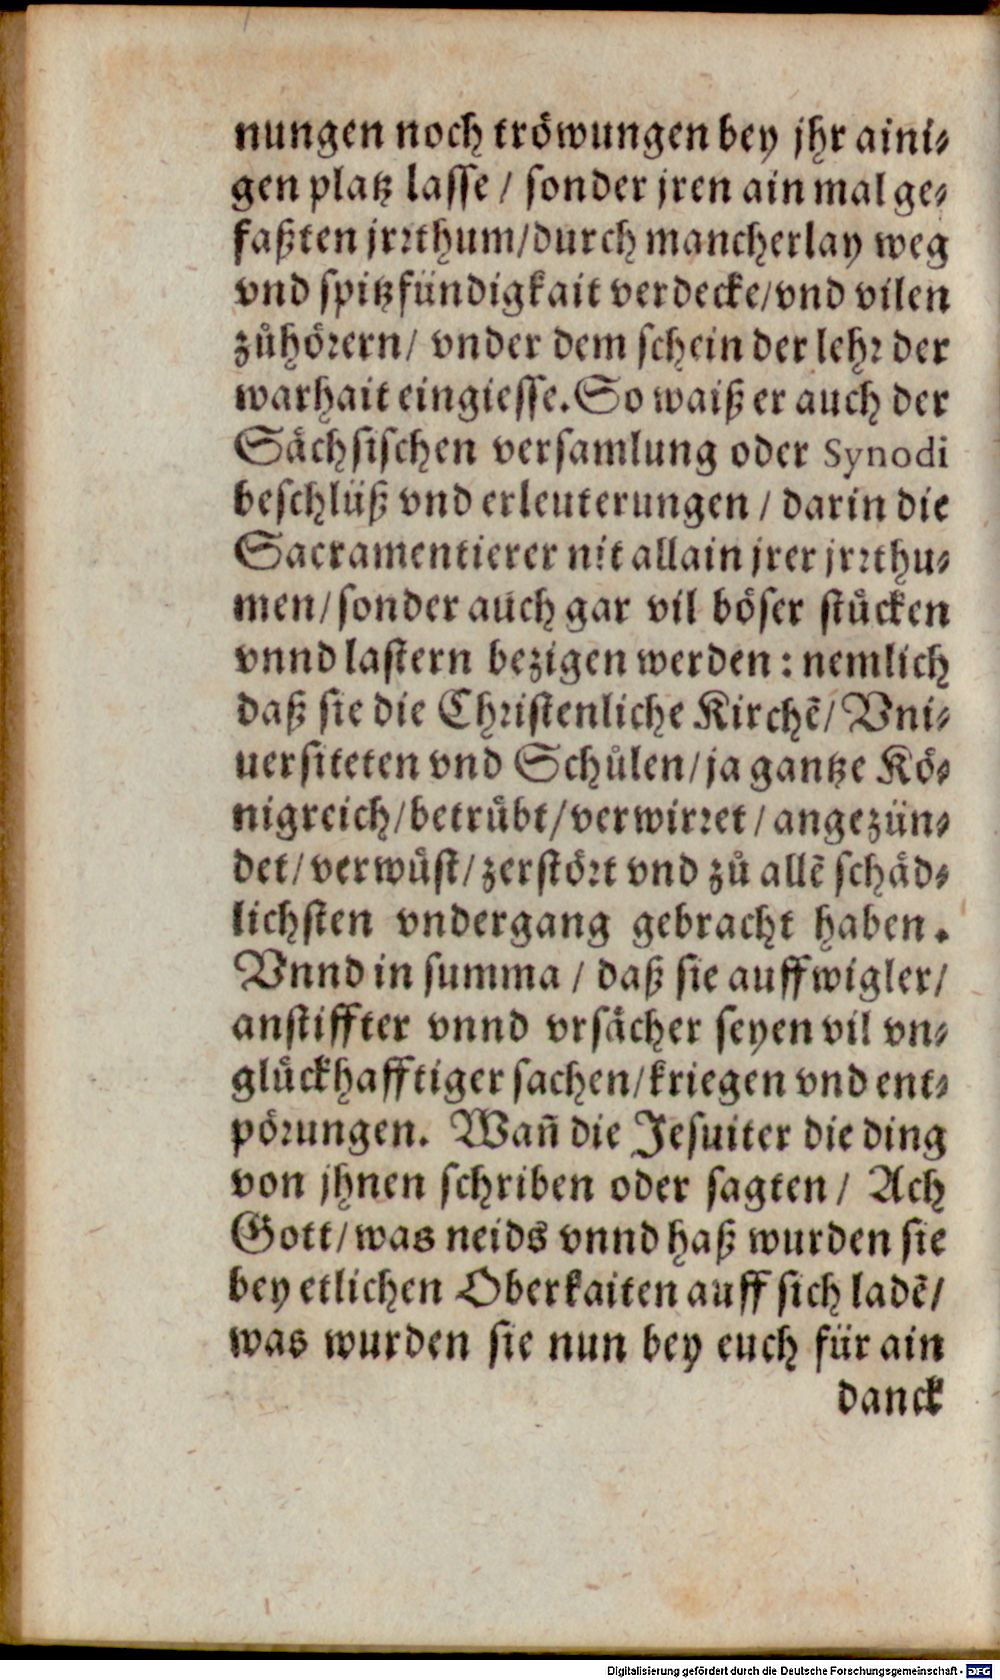 nungen noch tröwungen bey jhr aini⸗
gen platz lasse / sonder jren ain mal ge⸗
faßten jrꝛthum/durch mancherlay weg
vnd spitzfündigkait verdecke/vnd vilen
zůhöꝛern/ vnder dem schein der lehꝛ der
warhait eingiesse. So waiß er auch der
Sächsischen versamlung oder Synodi
beschlüß vnd erleuterungen / darin die
Sacramentierer nit allain jrer jrꝛthu⸗
men/sonder auch gar vil böser stücken
vnnd lastern bezigen werden : nemlich
daß sie die Chꝛistenliche Kirchẽ/ Vni⸗
uersiteten vnd Schůlen/ja gantze Kö⸗
nigreich/betrübt/verwirꝛet/angezün⸗
det/verwüst/zerstöꝛt vnd zů allẽ schäd⸗
lichsten vndergang gebracht haben.
Vnnd in summa / daß sie auffwigler/
anstiffter vnnd vrsächer seyen vil vn⸗
glückhafftiger sachen/kriegen vnd ent⸗
pöꝛungen. Wañ die Jesuiter die ding
von jhnen schriben oder sagten/ Ach
Gott/was neids vnnd haß wurden sie
bey etlichen Oberkaiten auff sich ladẽ/
was wurden sie nun bey euch für ain
danck
Digitalisierung gefördert durch die Deutsche Forschungsgemeinschaft - DFG